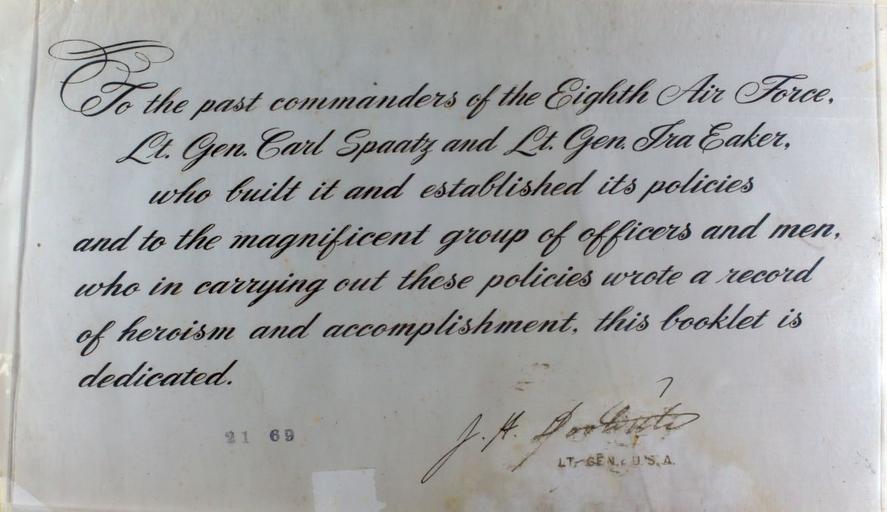 To the past commanders of the Eighth Air Force,
Lt. Gen. Carl Spaatz and Lt. Gen. Ira Eaker,
who built it and established its policies
and to the magnificent group of officers and men,
who in carrying out these policies wrote a record
of heroism and accomplishment, this booklet is
dedicated.
21 69
J. H. Doolittle
LT. GEN., U.S.A.